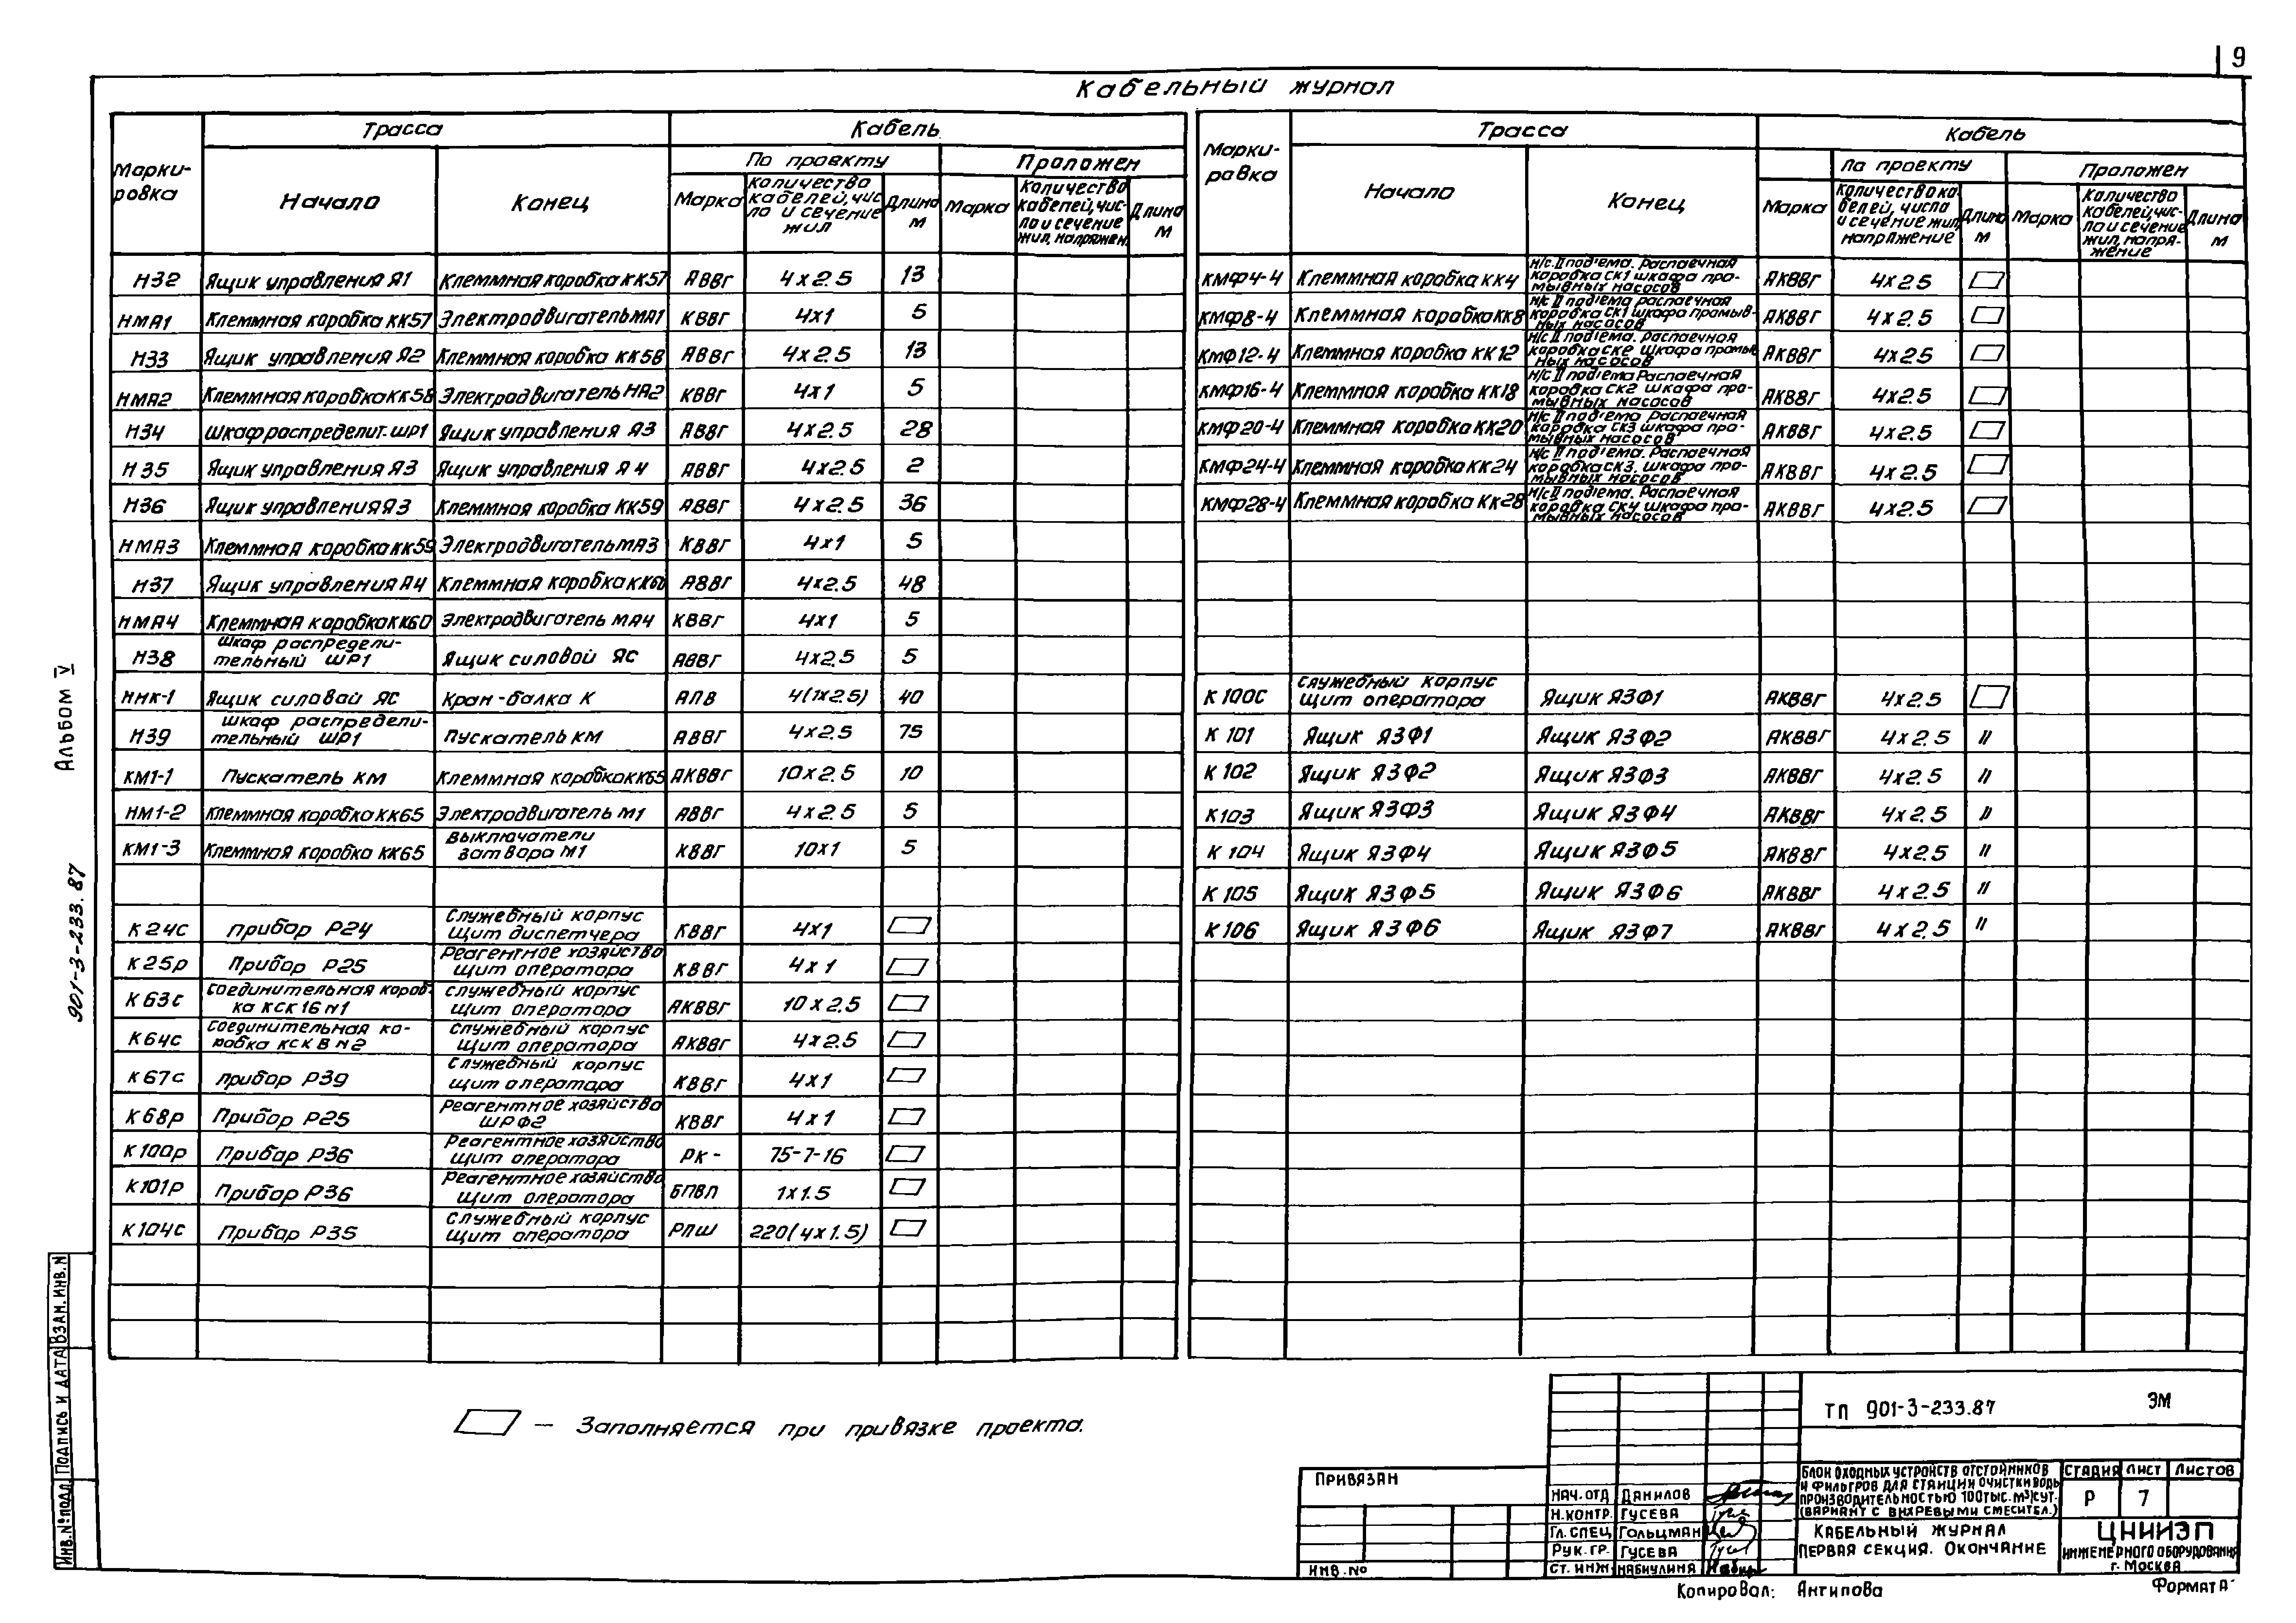 9
Кабельный журнал
Марки-
ровка
Трасса
Кабель
Начало
Конец
По проекту
Проложен
Марка
Количество
кабелей, чис
ло и сечение
жил
Длина
м
Марка
Количество
кабелей, чис-
ло и сечение
жил, напряжен.
Длина
м
Н32 Ящик управления Я1 Клеммная коробка КК57 АВВГ 4х2.5 13
НМА1 Клеммная коробка КК57 Электродвигатель МА1 КВВГ 4х1 5
Н33 Ящик управления Я2 Клеммная коробка КК58 АВВГ 4х2.5 13
НМА2 Клеммная коробка КК58 Электродвигатель НА2 КВВГ 4х1 5
Н34 Шкаф распределит. ШР1 Ящик управления Я3 АВВГ 4х2.5 28
Н35 Ящик управления Я3 Ящик управления Я4 АВВГ 4х2.5 2
Н36 Ящик управления Я3 Клеммная коробка КК59 АВВГ 4х2.5 36
НМА3 Клеммная коробка КК59 Электродвигатель МА3 КВВГ 4х1 5
Н37 Ящик управления Я4 Клеммная коробка КК60 АВВГ 4х2.5 48
НМА4 Клеммная коробка КК60 Электродвигатель МА4 КВВГ 4х1 5
Шкаф распредели-
Н38 тельный ШР1 Ящик силовой ЯС АВВГ 4х2.5 5
ННК-1 Ящик силовой ЯС Кран-балка К АПВ 4(1х2.5) 40
Шкаф распредели-
Н39 тельный ШР1 Пускатель КМ АВВГ 4х2.5 75
КМ1-1 Пускатель КМ Клеммная коробка КК65 АКВВГ 10х2.5 10
НМ1-2 Клеммная коробка КК65 Электродвигатель М1 АВВГ 4х2.5 5
Выключатели
КМ1-3 Клеммная коробка КК65 затвора М1 КВВГ 10х1 5
Служебный корпус
К24с Прибор Р24 щит диспетчера КВВГ 4х1
Реагентное хозяйство
К25р Прибор Р25 щит оператора КВВГ 4х1
Соединительная короб- Служебный корпус
К63с ка КСК16 N1 щит оператора АКВВГ 10х2.5
Соединительная ко- Служебный корпус
К64с робка КСК 8 N2 щит оператора АКВВГ 4х2.5
Служебный корпус
К67с Прибор Р39 щит оператора КВВГ 4х1
Реагентное хозяйство
К68р Прибор Р25 ШРФ2 КВВГ 4х1
Реагентное хозяйство
К100р Прибор Р36 щит оператора РК- 75-7-16
Реагентное хозяйство
К101р Прибор Р36 щит оператора БПВЛ 1х1.5
Служебный корпус
К104с Прибор Р35 щит оператора РПШ 220(4х1.5)
Марки-
ровка
Трасса
Кабель
Начало
Конец
По проекту
Проложен
Марка
Количество ка
белей, число
и сечение жил,
напряжение
Длина
м
Марка
Количество
кабелей, чис-
ло и сечение
жил, напря-
жение
Длина
м
Н/с II подъема. Распаечная
КМФ4-4 Клеммная коробка КК4 коробка СК1 шкафа про- АКВВГ 4х2.5
мывных насосов
Н/с II подъема распаечная
КМФ8-4 Клеммная коробка КК8 коробка СК1 шкафа промыв- АКВВГ 4х2.5
ных насосов
Н/с II подъема. Распаечная
КМФ12-4 Клеммная коробка КК12 коробка СК2 шкафа промыв АКВВГ 4х2.5
ных насосов
Н/с II подъема Распаечная
КМФ16-4 Клеммная коробка КК18 коробка СК2 шкафа про- АКВВГ 4х2.5
мывных насосов
Н/с II подъема Распаечная
КМФ20-4 Клеммная коробка КК20 коробка СК3 шкафа про- АКВВГ 4х2.5
мывных насосов
Н/с II подъема. Распаечная
КМФ24-4 Клеммная коробка КК24 коробка СК3. шкафа про- АКВВГ 4х2.5
мывных насосов
Н/с II подъема. Распаечная
КМФ28-4 Клеммная коробка КК28 коробка СК4 шкафа про- АКВВГ 4х2.5
мывных насосов
Служебный корпус
К100с щит оператора Ящик ЯЗФ1 АКВВГ 4х2.5
К101 Ящик ЯЗФ1 Ящик ЯЗФ2 АКВВГ 4х2.5 //
К102 Ящик ЯЗФ2 Ящик ЯЗФ3 АКВВГ 4х2.5 //
К103 Ящик ЯЗФ3 Ящик ЯЗФ4 АКВВГ 4х2.5 //
К104 Ящик ЯЗФ4 Ящик ЯЗФ5 АКВВГ 4х2.5 //
К105 Ящик ЯЗФ5 Ящик ЯЗФ6 АКВВГ 4х2.5 //
К106 Ящик ЯЗФ6 Ящик ЯЗФ7 АКВВГ 4х2.5 //
— Заполняется при привязке проекта.
Альбом V
901-3-233.87
Взам. инв. N
Подпись и дата
Инв. № подл
Привязан
Инв. №
Нач. отд Данилов
Н. контр. Гусева
Гл. спец Гольцман
Рук. гр. Гусева
Ст. инж. Набиулина
ТП 901-3-233.87 ЭМ
Блок входных устройств отстойников
и фильтров для станции очистки воды
производительностью 100 тыс. м³/сут.
(вариант с вихревыми смесител.)
Стадия Лист Листов
Р 7
Кабельный журнал
Первая секция. Окончание
ЦНИИЭП
инженерного оборудования
г. Москва
Копировал: Антипова
Формат А